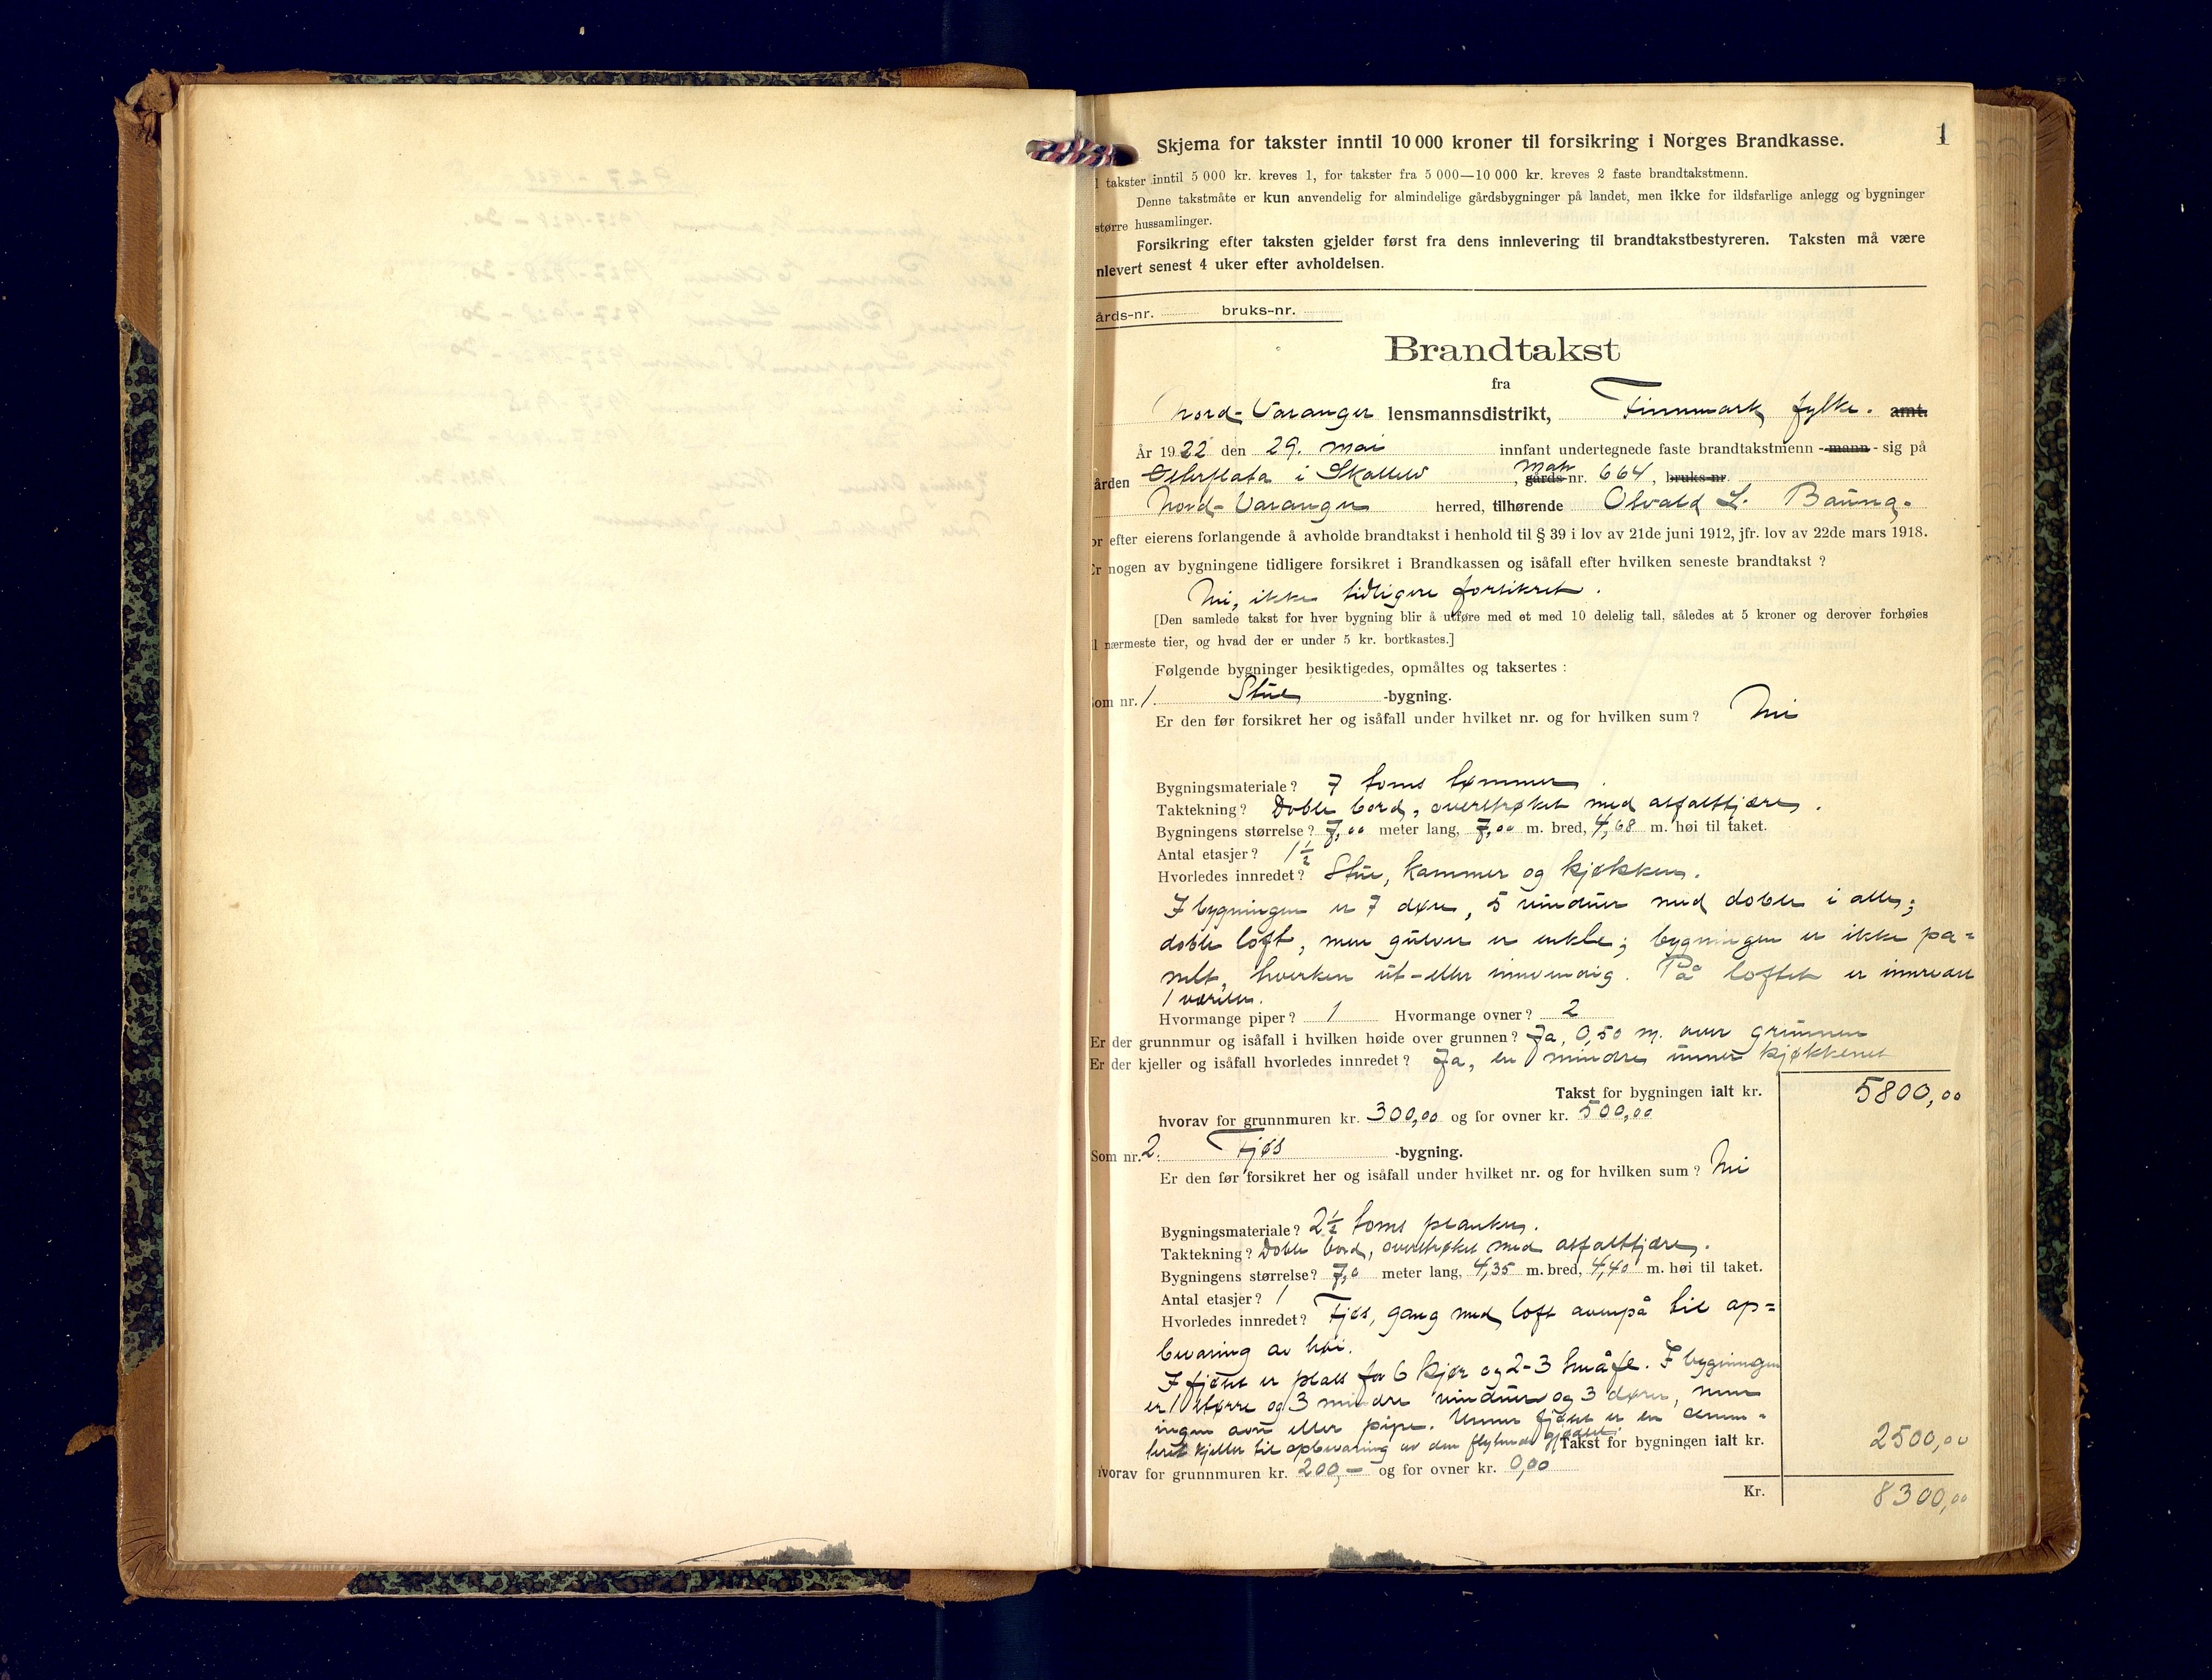 1
Skjema for takster inntil 10 000 kroner til forsikring i Norges Brandkasse.
l takster inntil 5 000 kr. kreves 1, for takster fra 5 000—10 000 kr. kreves 2 faste brandtakstmenn.
Denne takstmåte er kun anvendelig for almindelige gårdsbygninger på landet, men ikke for ildsfarlige anlegg og bygninger
større hussamlinger.
Forsikring efter taksten gjelder først fra dens innlevering til brandtakstbestyreren. Taksten må være
nlevert senest 4 uker efter avholdelsen.
årds-nr. bruks-nr.
Brandtakst
fra
Nord-Varanger lensmannsdistrikt, Finnmark fylke. amt.
År 1922 den 29. mai innfant undertegnede faste brandtakstmenn - mann - sig på
ården i Skallelv, gårds-nr. matr 664, bruks-nr.
Nord-Varanger herred, tilhørende Osvald L. Bauna.
or efter eierens forlangende å avholde brandtakst i henhold til § 39 i lov av 21de juni 1912, jfr. lov av 22de mars 1918.
Er nogen av bygningene tidligere forsikret i Brandkassen og isåfall efter hvilken seneste brandtakst ?
Nei, ikke tidligere forsikret.
[Den samlede takst for hver bygning blir å utføre med et med 10 delelig tall, således at 5 kroner og derover forhøies
il nærmeste tier, og hvad der er under 5 kr. bortkastes.]
Følgende bygninger besiktigedes, opmåltes og taksertes :
Som nr. 1. Stue -bygning.
Er den før forsikret her og isåfall under hvilket nr. og for hvilken sum ? Nei
Bygningsmateriale ? 7 toms tømmer.
Taktekning ? Doble bord, overstrøket med asfalttjære.
Bygningens størrelse ? 7,00 meter lang, 7,00 m. bred, 4,68 m. høi til taket.
Antal etasjer ? 1½
Hvorledes innredet ? Stue, kammer og kjøkken.
I bygningen er 7 døre, 5 vinduer med doble i alle;
doble loft, men gulver er enkle; bygningen er ikke pa=
nelt, hverken ut- eller innvendig. På loftet er innredet
1 værelse.
Hvormange piper ? 1 Hvormange ovner ? 2
Er der grunnmur og isåfall i hvilken høide over grunnen ? Ja, 0,50 m. over grunnen
Er der kjeller og isåfall hvorledes innredet ? Ja, en mindre under kjøkkenet
Takst for bygningen ialt kr. 5800,00
hvorav for grunnmuren kr. 300,00 og for ovner kr. 500,00
Som nr. 2. Fjøs -bygning.
Er den før forsikret her og isåfall under hvilket nr. og for hvilken sum ? Nei
Bygningsmateriale ? 2½ toms planker.
Taktekning ? Doble bord, overstrøket med asfalttjære.
Bygningens størrelse ? 7,0 meter lang, 4,35 m. bred, 4,40 m. høi til taket.
Antal etasjer ? 1
Hvorledes innredet ? Fjøs, gang med loft ovenpå til op=
bevaring av høi.
I fjøset er plass for 6 kjør og 2-3 småfe. I bygningen
er 1 større og 3 mindre vinduer og 3 dører, men
ingen ovn eller pipe. Under fjøset er en cemen=
tert kjeller til opbevaring av den flytende gjødsel.
Takst for bygningen ialt kr. 2500,00
hvorav for grunnmuren kr. 200,- og for ovner kr. 0,00
Kr. 8300,00